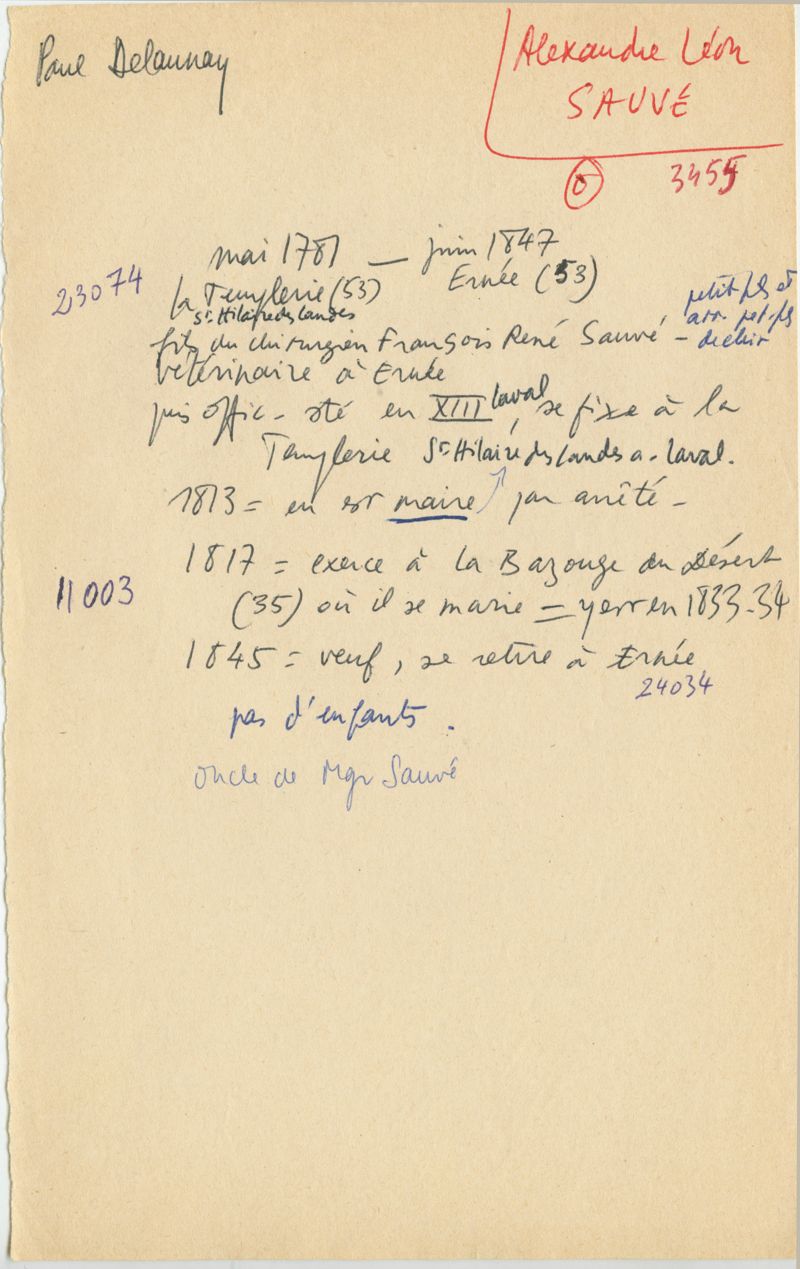 Paul Delaunay
Alexandre Léon
SAUVÉ
0 3455
mai 1781 — juin 1847
23074 la Templerie (53) Ernée (53)
St Hilaire des Landes
petit-fils et
arr. pet-fils
de chir
fils du chirurgien François René Sauvé -
vétérinaire à Ernée
puis offic- sté en XIII Laval, se fixe à la
Templerie St-Hilaire des Landes a - Laval.
1813 = en est maire par arrêté -
1817 = exerce à la Bazouge du Désert
11003 (35) où il se marie = y est en 1833-34
1845 = veuf, se retire à Ernée
24034
pas d'enfants.
oncle de Mgr Sauvé